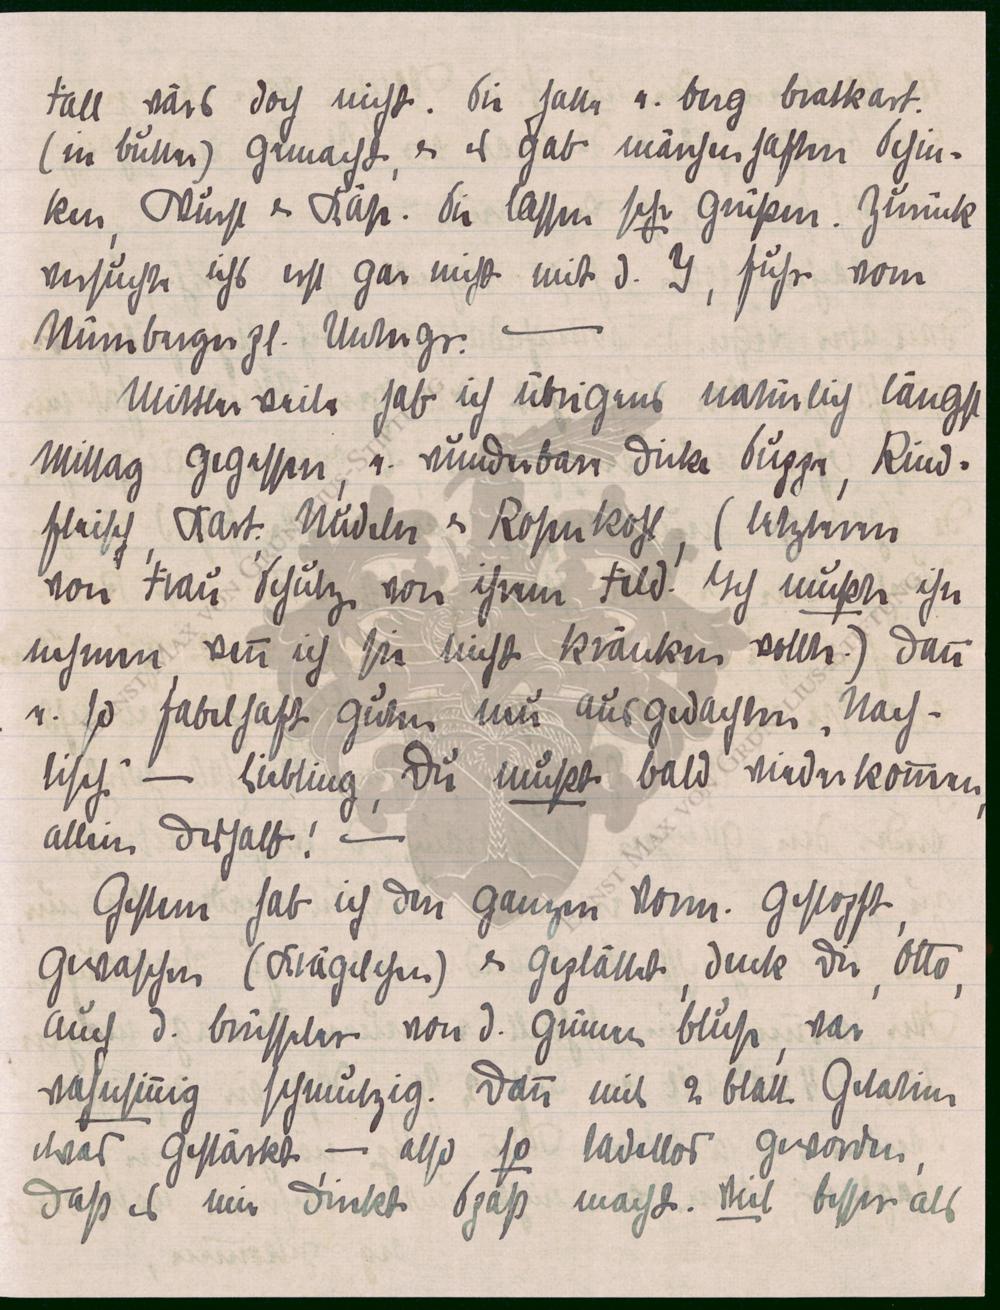 Fall wärs doch nicht. Sie hatte e. Berg Bratkart.
(in Butter) gemacht, & es gab märchenhaften Schin-
ken, Wurst & Käse. Sie lassen sehr grüßen. Zurück
versuchte ichs erst gar nicht mit d. Y, fuhr vom
Nürnbergerpl. Untergr. —
Mittlerweile hab ich übrigens natürlich längst
Mittag gegessen, e. wunderbare dicke Suppe, Rind-
fleisch, Kart. Nudeln & Rosenkohl, (letzteren
von Frau Schulz von ihrem Feld. Ich mußte ihn
nehmen, wen̄ ich sie nicht kränken wollte.) Dan̄
e. so fabelhaft guten neu ausgedachten, Nach-
tisch. — Liebling, Du mußt bald wiederkom̄en,
allein deshalb! —
Gestern hab ich den ganzen Vorm. gestopft,
gewaschen (Krägelchen) & geplättet, denk Dir, Otto,
auch d. Brüsseler von d. grünen Bluse, war
wahnsin̄ig schmutzig. Dan̄ mit 2 Blatt Gelatine
etwas gestärkt — also so tadellos geworden,
daß es mir direkt Spaß macht. Viel besser als
ERNST MAX VON GRUNELIUS-STIFTUNG
ERNST MAX VON GRUNELIUS-STIFTUNG